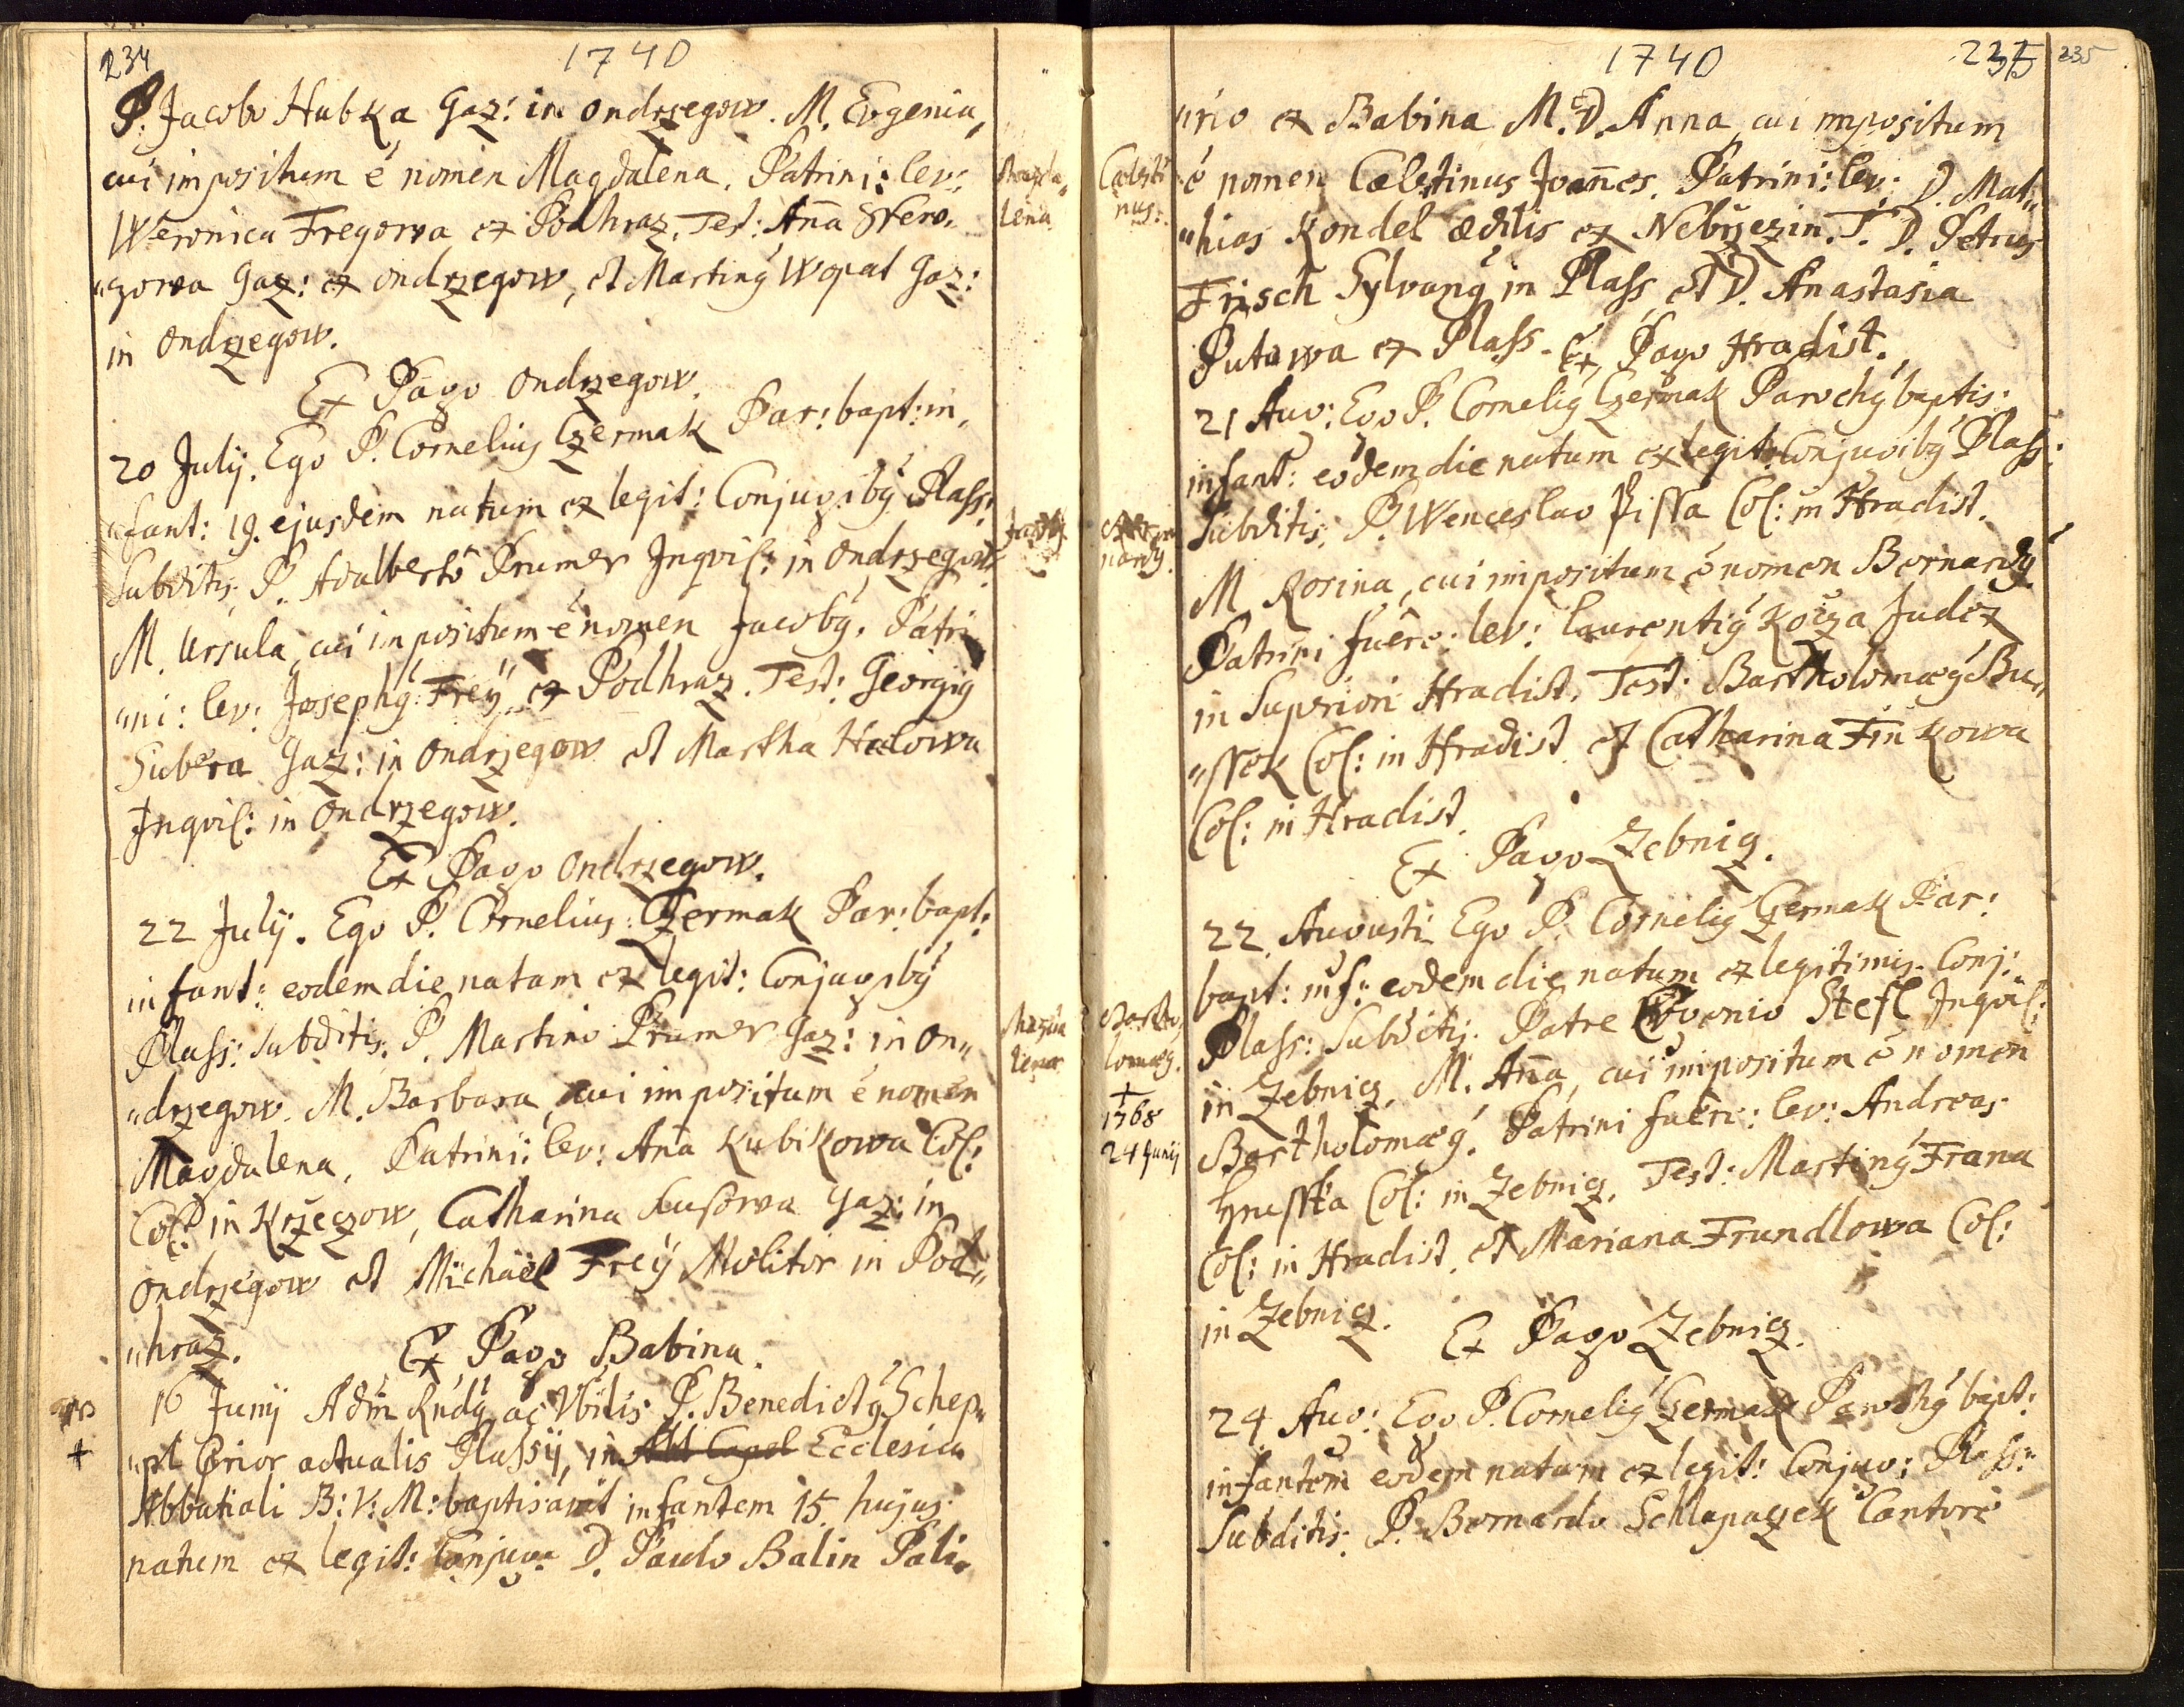 234
1740
P. Jacobo Hubka Gaz: in Ondrzegow. M. Evgenia,
cui impositum é nomen Magdalena. Patrini: lev:
Weronica Fregowa ex Podhraz. Test: Anna
"zowa Gaz: ex Ondrzegow, et Martinȳ Wopat Gaz:
in Ondrzegow.
Magda„
lena
Ex Pago Ondrzegow.
20 Julij. Ego P. Cornelius Czermak Par: bapt: in„
"fant: 19. ejusdem natum ex legit: Conjugibȳ Plass:
Subditis, P. Adalberto Prumer Inqvil: in Ondrzegow
M. Ursula, cui impositum é nomen Jacobȳ. Patri
"ni: lev: Josephȳ Freÿ ex Podhraz. Test: Georgiȳ
Subera Gaz: in Ondrzegow et Martha Halowa
Inqvil: in Ondrzegow.
Ex Pago Ondrzegow.
22 Julij. Ego P. Cornelius Czermak Par: bapt:
infant: eodem die natam ex legit: Conjugibȳ
Plass: Subditis, P. Martino Prumer Gaz: in On„
"drzegow. M. Barbara, cui impositum é nomen
Magdalena. Patrini: lev: Ana Kubikowa Col:
Col: in Krzeczow, Catharina Gaz: in
Ondrzegow et Michäel Freÿ Molitor in Pod„
"hraz.
Magda
lena
Ex Pago Babina.
16 Junij Adm Rndȳ ac Vbilis P. Benedictȳ Schep„
"pl Prior actualis Plassij, in Abb Capel Ecclesia
Abbatiali B: V: M: baptisavit infantem 15 hujus
natum ex legit: Conjug: D. Paulo Balin Pali„
+
1740
235
235
"rio ex Babina M. D. Anna, cui impositum
é nomen Cælestinus Joannes. Patrini: lev: D. Mat„
"hias Kondel ædilis ex Nebrzezin. T. D. Petrus
Frisch Sylvanȳ in Plass et D. Anastasia
Putawa ex Plass.
Cælesti
nus.
Ex Pago Hradist.
21 Aug: Ego P. Corneliȳ Czermak Parochȳ baptis:
infant: eodem die natum ex legit: Conjugibȳ Plass:
Subditis, P. Wenceslao Pissa Col: in Hradist.
M Rosina, cui impositum é nomen Bernardȳ
Patrini fuêre: lev: Laurentiȳ Koiza Judex
in Superiori Hradist. Test: Bartholomæȳ Bu„
"ssek Col: in Hradist et Catharina Finkowa
Col: in Hradist.
nardȳ.
Ex Pago Zebnicz.
22 Augusti Ego P. Corneliȳ Czermak Par:
bapt: inf: eodem die natum ex legitimis Conj:
Plass: Subditis. Patre Stefl Inqvil:
in Zebnicz, M. Anna, cui impositum é nomen
Bartholomæȳ. Patrini fuêre: lev: Andreas
Hrusska Col: in Zebnicz. Test: Martinȳ Frana
Col: in Hradist. et Mariana Frundlowa Col:
in Zebnicz.
Bartho„
lomæȳ.
+
1768
24 Junij
Ex Pago Zebnicz.
24 Aug: Ego P. Corneliȳ Czermak Parochȳ bapt:
infantem eodem natum ex legit: Conjug: Plass:
Subditis. P. Bernardo Schlapaczek Cantore